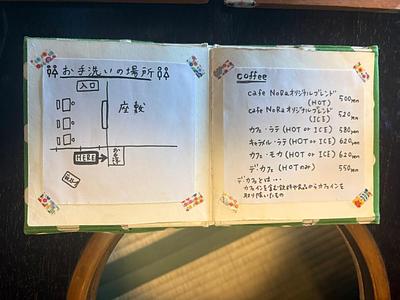 お手洗いの場所
入口
座敷
HERE
お手洗
coffee
cafe NoRaオリジナルブレンド
(HOT) 500yen
cafe NoRaオリジナルブレンド
(ICE) 520yen
カフェ・ラテ (HOT or ICE) 580yen
キャラメル・ラテ (HOT or ICE) 620yen
カフェ・モカ (HOT or ICE) 620yen
デカフェ (HOTのみ) 550yen
デカフェとは…
カフェインを含む飲料や食品からカフェインを
取り除いたもの